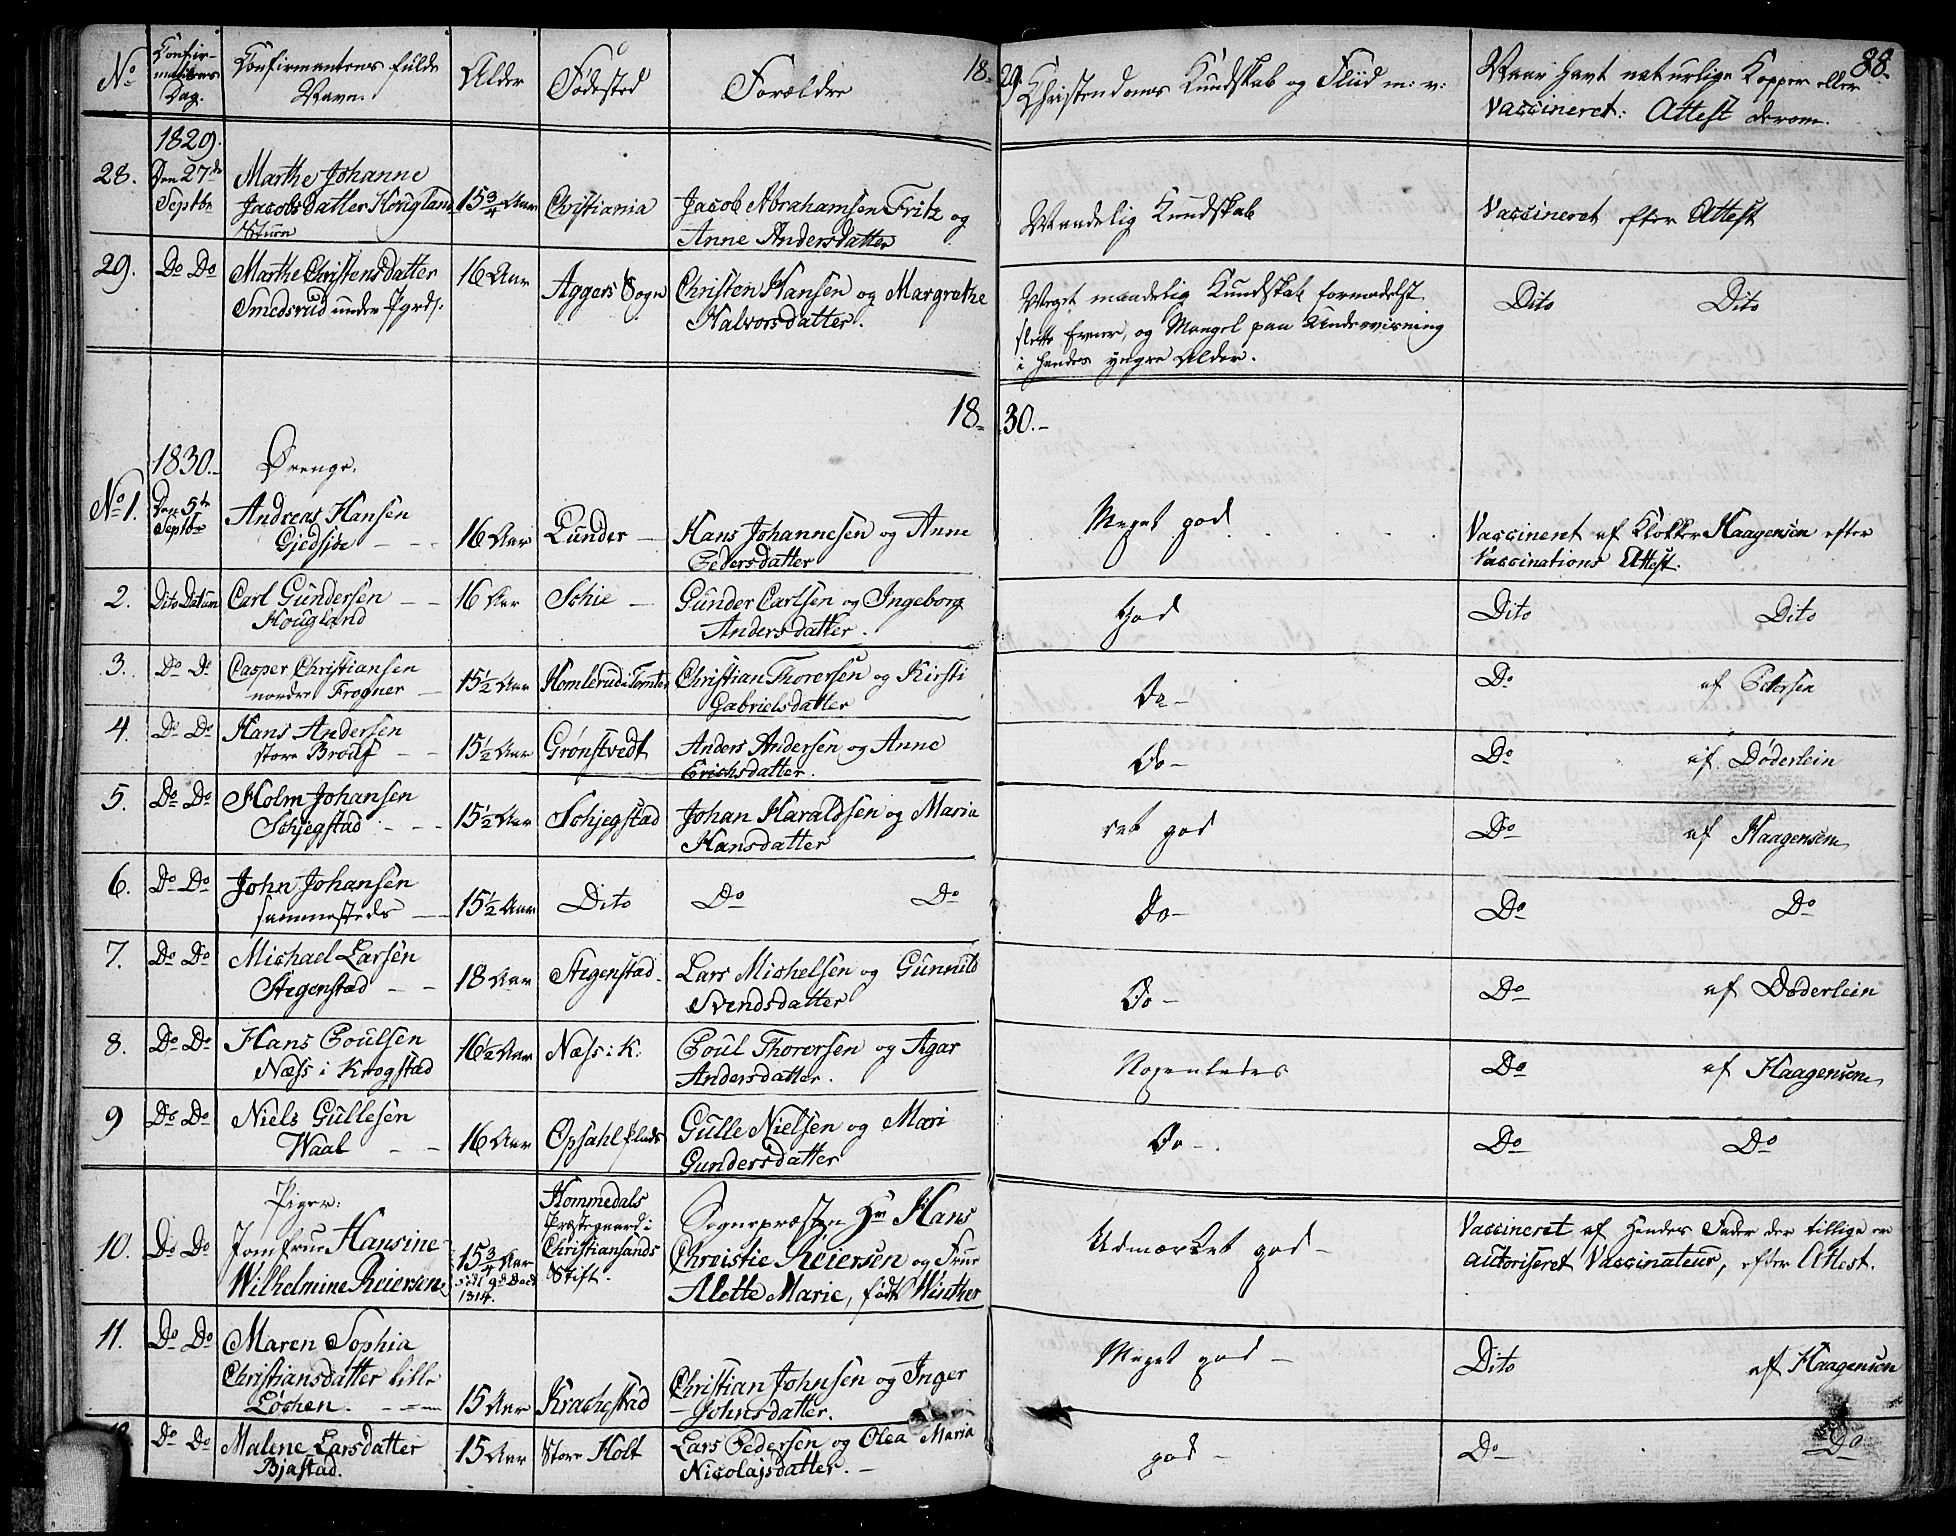 No
Confir-
mations
Dag.
Confirmantens fulde
Navn.
Alder
Fødested
Forældre
18 29
Christendoms Kundskab og Fliid m: v:
Naar havt naturlige Kopper eller
Vaccineret: Attest derom.
88.
1829.
28. Den 27de
Septbr
Marthe Johanne
Jacobsdatter Hougland
15 3/4 Aar
Christiania
Jacob Abrahamsen Fritz og
Anne Andersdatter
Maadelig Kundskab
Vaccineret efter Attest
29. Do Do
Marthe Christensdatter
Smedsrud under Pgrd.
16 Aar
Aggers Sogn
Christen Hansen og Margrethe
Halvorsdatter.
Meget maadelig Kundskab formedelst
slette Evner, og Mangel paa Underviisning
i hendes yngre Alder.
Dito Dito
18 30.-
1830.-
Drenge.
No 1. Den 5te
Septbr
Andreas Hansen
Gjedsjøe
16 Aar
Lunder
Hans Johannesen og Anne
Pedersdatter
Meget god
Vaccineret af Klokker Haagensen efter
Vaccinations Attest.
2. Dito Datum
Carl Gundersen
Hougland
16 Aar
Schie
Gunder Carlsen og Ingeborg
Andersdatter.
God
Dito Dito
3. Do Do
Casper Christiansen
nordre Frogner
15 1/2 Aar
Homlerud i Tomter
Christian Thorersen og Kirsti
Gabrielsdatter
Do-
Do af Petersen
4. Do Do
Hans Andersen
store Brouf
15 1/2 Aar
Grønstvedt
Anders Andersen og Anne
Erichsdatter.
Do-
Do af Døderlein
5. Do Do
Holm Johansen
Schjegstad
15 1/2 Aar
Schjegstad
Johan Haraldsen og Maria
Hansdatter
ret god
Do af Haagensen
6. Do Do
John Johansen
sammesteds
15 1/2 Aar
Dito
Do Do
Do-
Do Do
7. Do Do
Michael Larsen
Stegenstad
18 Aar
Stegenstad
Lars Michelsen og Gunnild
Svendsdatter
Do-
Do af Døderlein
8. Do Do
Hans Poulsen
Næss i Krogstad
16 1/2 Aar
Næss i K.
Poul Thorersen og Agar
Andersdatter.
Nogenledes
Do af Haagensen
9 Do Do
Niels Gullesen
Waal
16 Aar
Opsahl Plads
Gulle Nielsen og Mari
Gundersdatter
Do-
Do Do
Piger:
10. Do Do
Jomfrue Hansine
Wilhelmine Reiersen
15 3/4 Aar
født 9de Decbr
1814.
Hommedals
Præstegaard i
Christiansands
Stift.
Sognepræsten Hr Hans
Christie Reiersen og Frue
Alette Marie, født Winther
Udmærket god-
Vaccineret af hendes Fader der tillige er
autoriseret Vaccinateur, efter Attest.
11. Do Do
Maren Sophia
Christiansdatter lille
Løchen.
15 Aar
Krachestad
Christian Johnsen og Inger
Johnsdatter.
Meget god-
Dito af Haagensen
Do Do
Malene Larsdatter
Bjastad.
15 Aar
Store Holt
Lars Pedersen og Olea Maria
Nicolajsdatter.
god-
Do Do